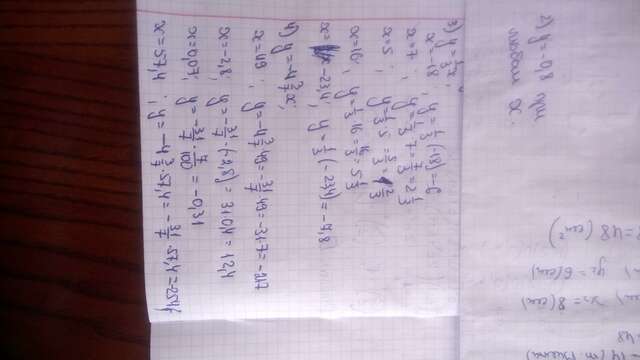 2) y = 0,8 при
любом x.
3) y = 1/3 x;
x = -18; y = 1/3 (-18) = -6
x = 7; y = 1/3 · 7 = 7/3 = 2 1/3
x = 5; y = 1/3 · 5 = 5/3 = 1 2/3
x = 16; y = 1/3 · 16 = 16/3 = 5 1/3
x = -23,4; y = 1/3 (-23,4) = -7,8
4) y = -4 3/7 x;
x = 49; y = -4 3/7 · 49 = -31/7 · 49 = -31·7 = -217
x = -2,8; y = -31/7 · (-2,8) = 31·0,4 = 12,4
x = 0,07; y = -31/7 · 7/100 = -0,31
x = 57,4; y = -4 3/7 · 57,4 = -31/7 · 57,4 = -254
= 48 (см²)
y₂ = 6 (см)
x₂ = 8 (см)